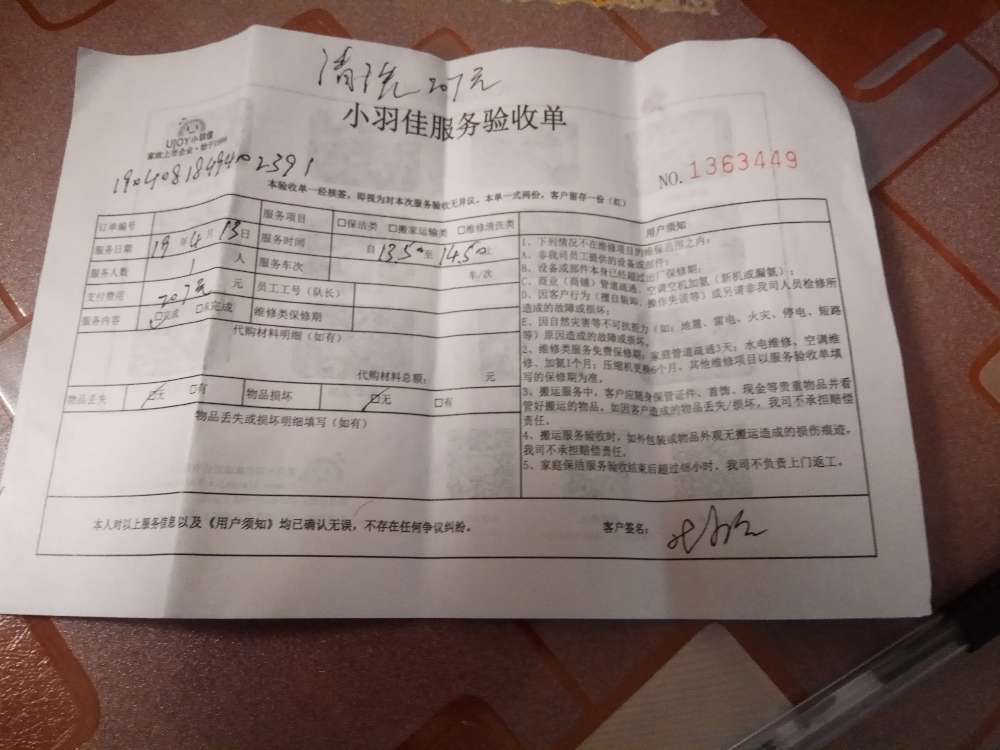 清洗 207元
小羽佳服务验收单
UJOY小羽佳
家政上市企业·始于1999
1904081849402391
NO. 1363449
本验收单一经核签，即视为对本次服务验收无异议，本单一式两份，客户留存一份（红）
订单编号 服务项目 □保洁类 □搬家运输类 □维修清洗类
服务日期 19年4月13日 服务时间 自 13.50 至 14.50 止
服务人数 1 人 服务车次 车/次
支付费用 207元 元 员工工号（队长）
服务内容 □完成 □未完成 维修类保修期
代购材料明细（如有）
代购材料总额： 元
物品丢失 □无 □有 物品损坏 □无 □有
物品丢失或损坏明细填写（如有）
用户须知
1、下列情况不在维修项目的维保范围之内：
A、非我司员工提供的设备或部件；
B、设备或部件本身已经超过出厂保修期；
C、商业（商铺）管道疏通、空调空机加氨（新机或漏氨）；
D、因客户行为（擅自装卸、操作失误等）或另请非我司人员检修所
造成的故障或损坏；
E、因自然灾害等不可抗拒力（如：地震、雷电、火灾、停电、短路
等）原因造成的故障或损坏。
2、维修类服务免费保修期：家庭管道疏通3天；水电维修、空调维
修、加氨1个月；压缩机更换6个月。其他维修项目以服务验收单填
写的保修期为准。
3、搬运服务中，客户应随身保管证件、首饰、现金等贵重物品并看
管好搬运的物品，如因客户造成的物品丢失/损坏，我司不承担赔偿
责任。
4、搬运服务验收时，如外包装或物品外观无搬运造成的损伤痕迹，
我司不承担赔偿责任。
5、家庭保洁服务验收结束后超过48小时，我司不负责上门返工。
本人对以上服务信息以及《用户须知》均已确认无误，不存在任何争议纠纷。 客户签名：